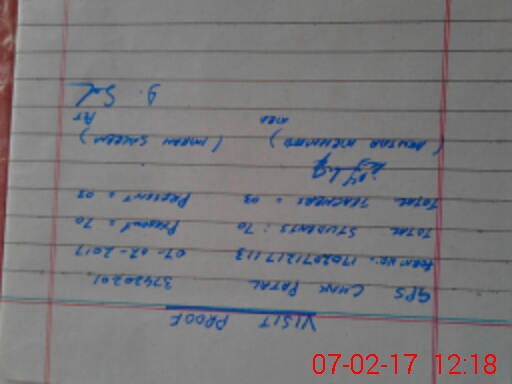 VISIT PROOF
GPS CHAK PATAL 37420201
FORM NO: 170207121711 3 07-02-2017
TOTAL STUDENTS : 70 PRESENT = 70
TOTAL TEACHERS = 03 PRESENT = 03
( AKHTAR MEHMOOD ) ( IMRAN SALEEM )
MEA
07-02-17 12:18